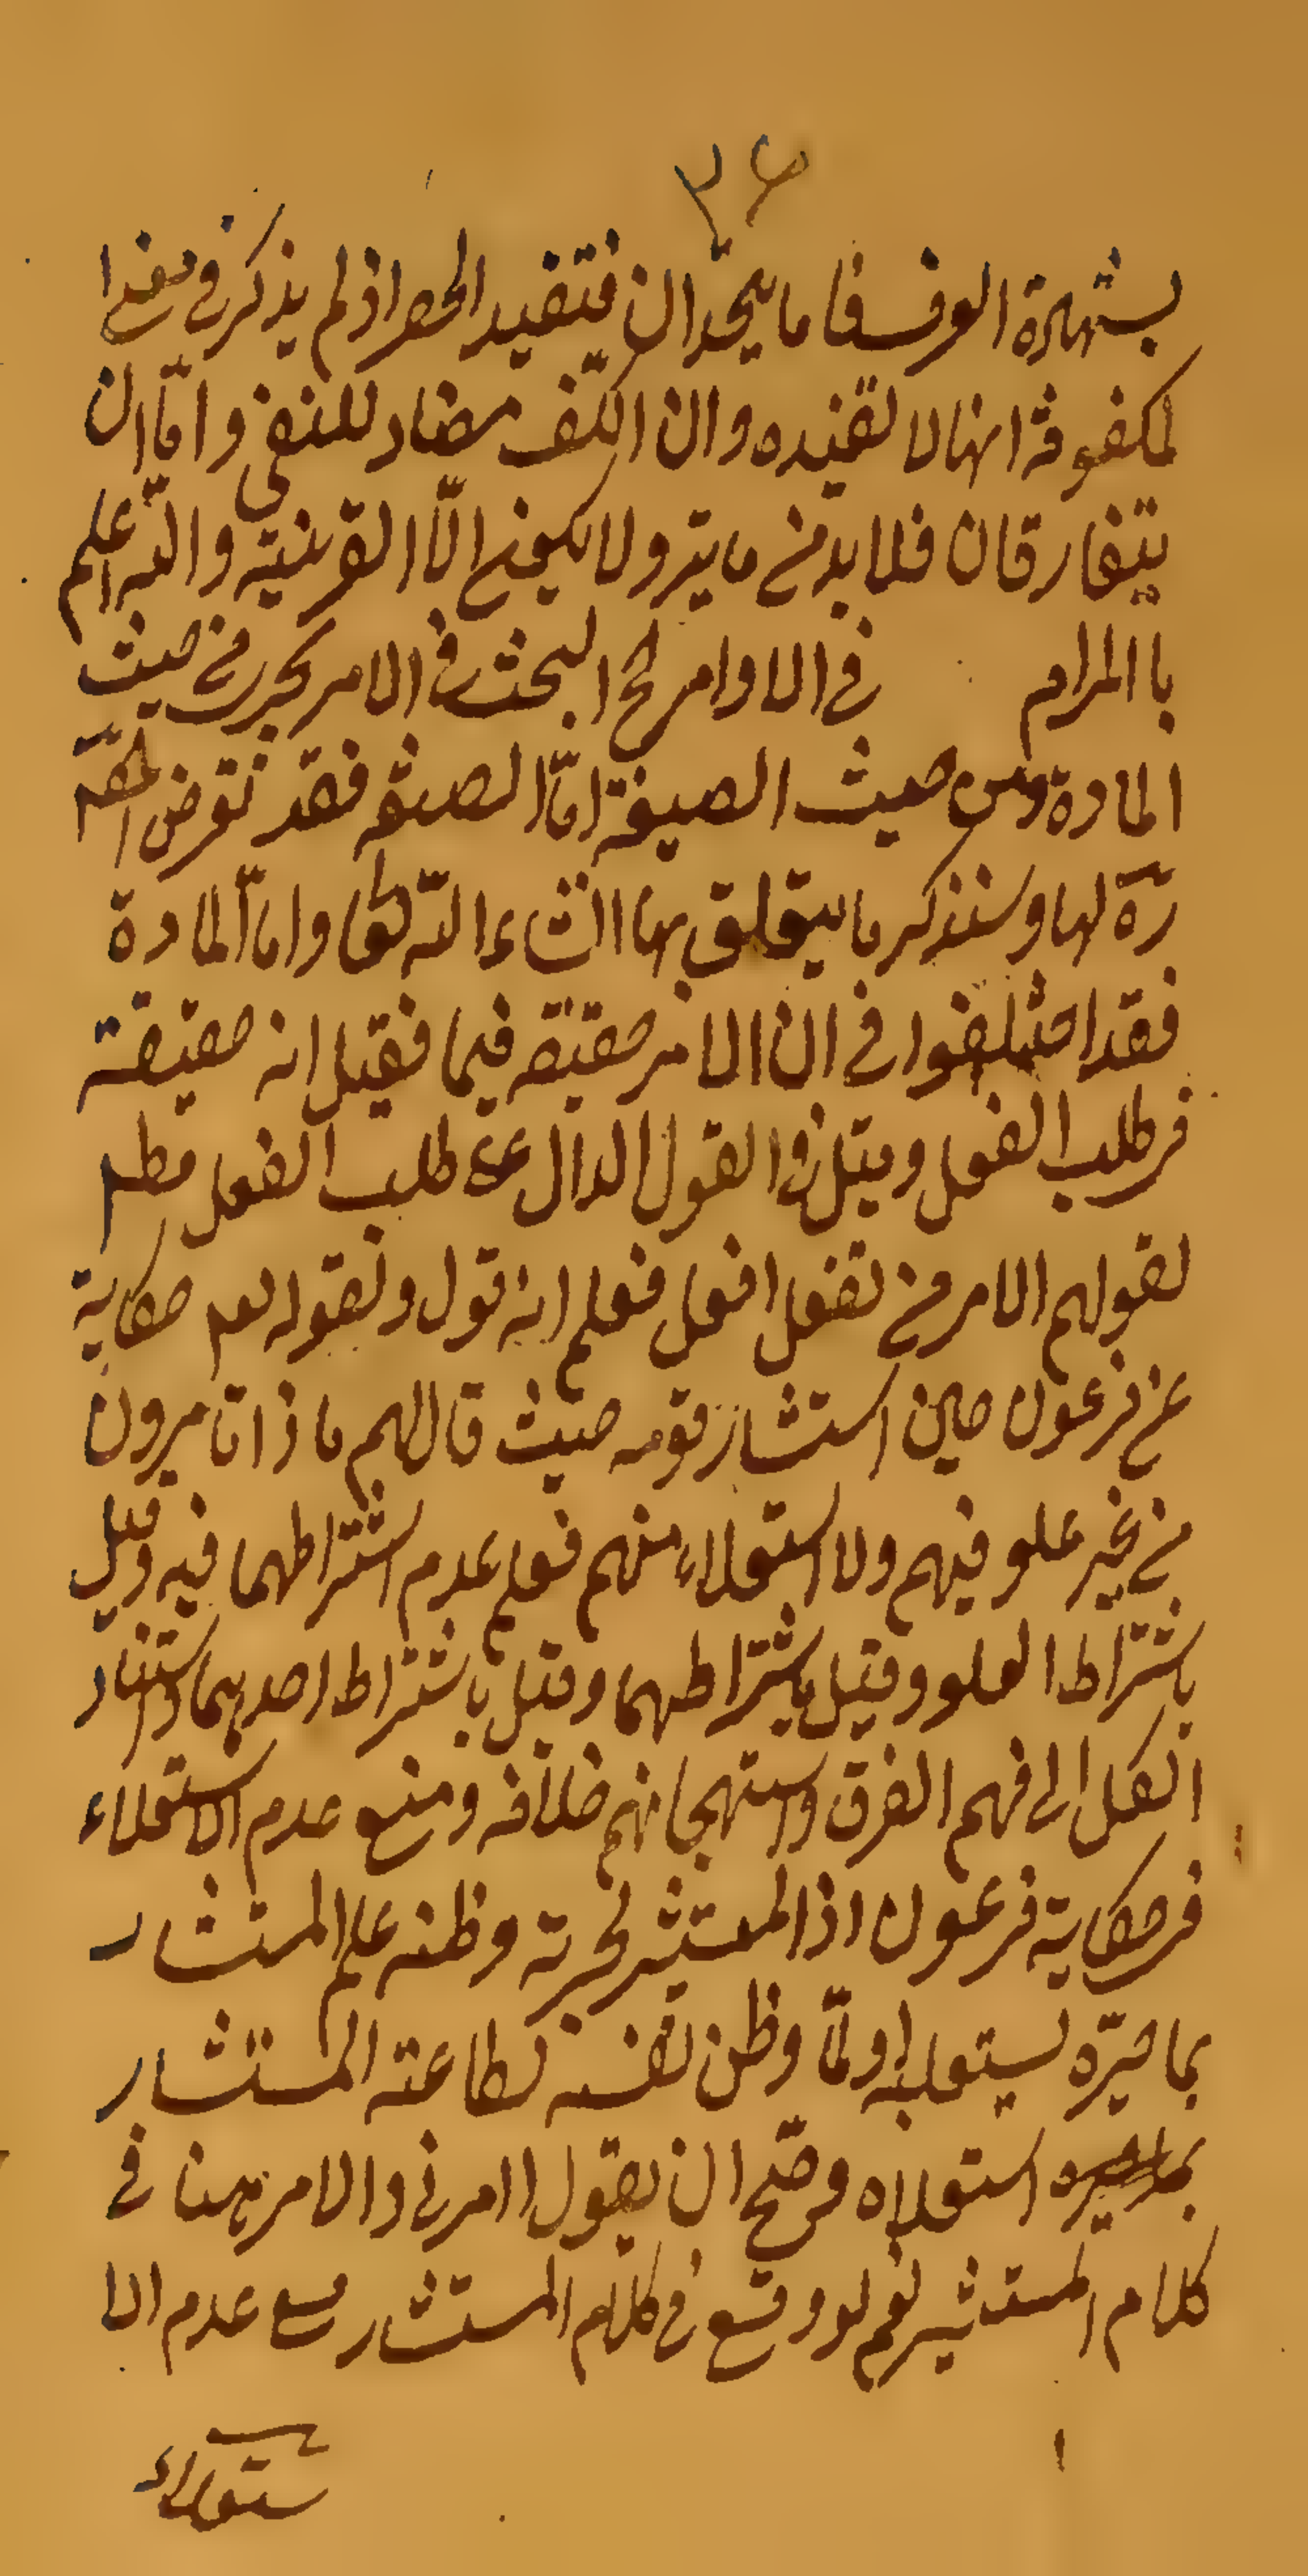 ٣٤
بشهادة الوفسفا ما يتحدان فتقيد الحصر اذ لم يذكر في
المكفوفة انها لا تقيده وان الكف مضاد للنفي واما ان
يتفارقان فلا بد من ما يتر ولا يكون الا القرينة والله اعلم
باالمرام في الاوامر البحث في الامر يجري من حيث
المادة ومن حيث الصيغة امّا الصيغة فقد تعرض المصّ
ره لها وسنذكر ما يتعلق بها انشاء الله تعا وامّا المادة
فقد اختلفوا في ان الامر حقيقة فيما فقيل انه حقيقة
في طلب الفعل وقيل في القول الدال على طلب الفعل مطلـ
لقولهم الامر من تفعل افعل فعلم انه قول ولقوله تعـ حكاية
عن فرعون حين استشار قومه حيث قال لهم ماذا تامرون
من غير علو فيهم ولا استعلاء منهم فعلم عدم اشتراطهما فيه وقيل
باشتراط العلو وقيل باشتراطهما وقيل باشتراط احدهما واستناد
الكل الى فهم الفرق واستهجانهم خلافه ومنع عدم الاستعلاء
في حكاية فرعون اذ المستشير لحيرته وظنه علم المستشار
بما حيّره يستعليه او لمّا وظن نفسه لطاعته المستشار
استعلاه فصحّ ان يقول اامرني والامر هنا في
كلام المستشير نعم لو وقع في كلام المستشار مع عدم الا
ستعلاء